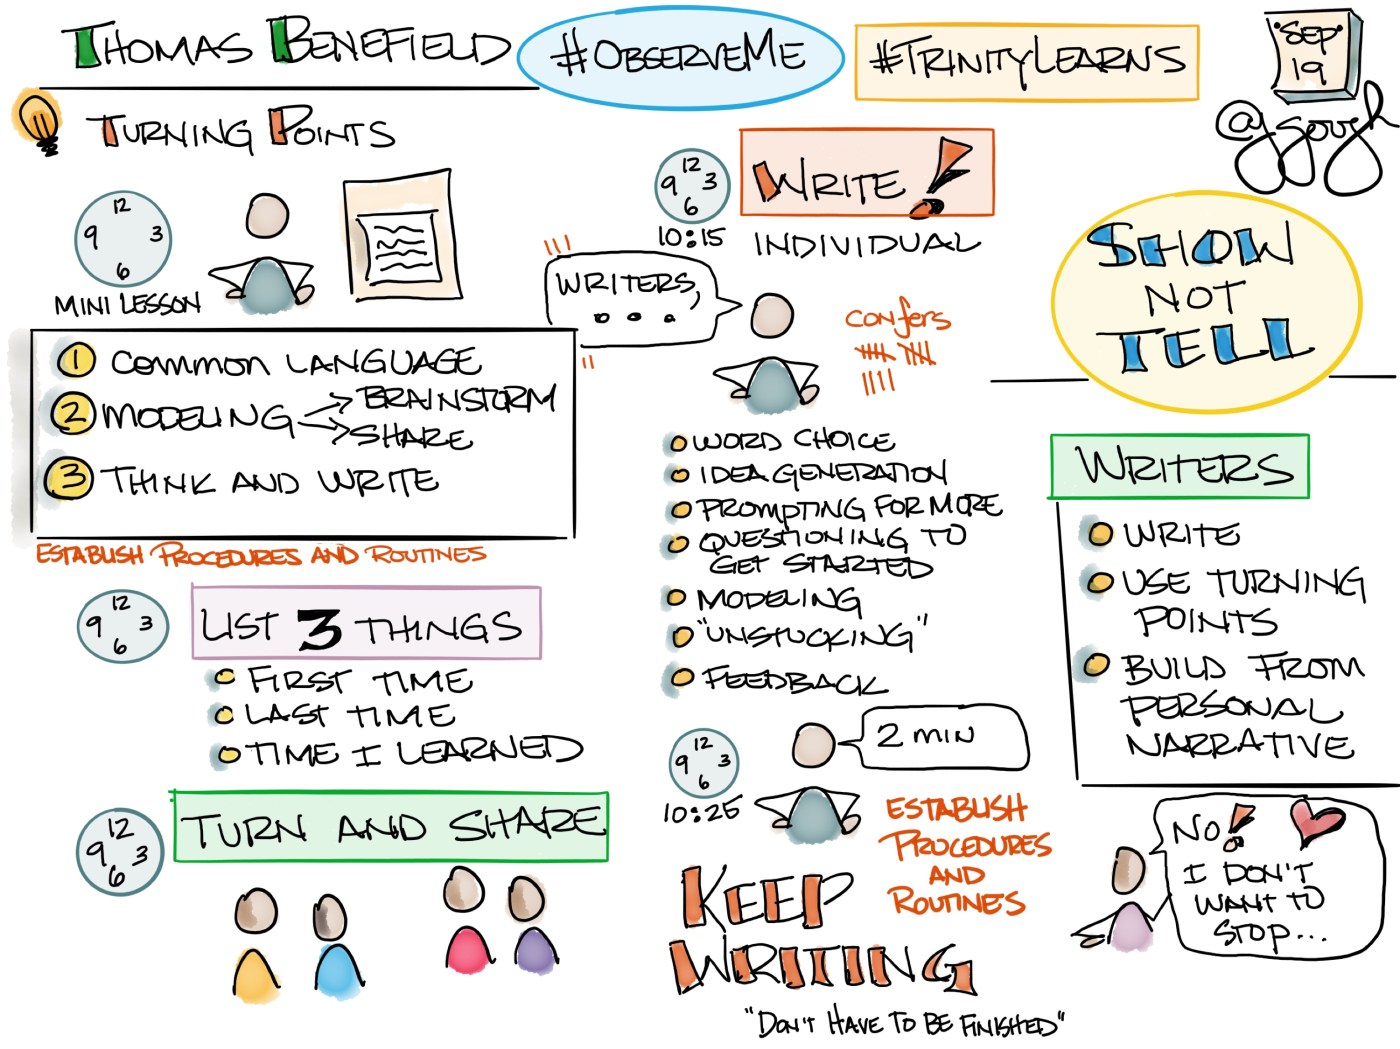 THOMAS BENEFIELD
#OBSERVEME
#TRINITYLEARNS
SEP
19
@jgough
TURNING POINTS
12
9 3
6
MINI LESSON
1 COMMON LANGUAGE
2 MODELING
BRAINSTORM
SHARE
3 THINK AND WRITE
ESTABLISH PROCEDURES AND ROUTINES
12
9 3
6
LIST 3 THINGS
FIRST TIME
LAST TIME
TIME I LEARNED
12
9 3
6
TURN AND SHARE
12
9 3
6
10:15
WRITE!
INDIVIDUAL
WRITERS,
...
CONFERS
WORD CHOICE
IDEA GENERATION
PROMPTING FOR MORE
QUESTIONING TO
GET STARTED
MODELING
"UNSTUCKING"
FEEDBACK
12
9 3
6
10:25
2 MIN
ESTABLISH
PROCEDURES
AND
ROUTINES
KEEP
WRITING
"DON'T HAVE TO BE FINISHED"
SHOW
NOT
TELL
WRITERS
WRITE
USE TURNING
POINTS
BUILD FROM
PERSONAL
NARRATIVE
NO!
I DON'T
WANT TO
STOP...